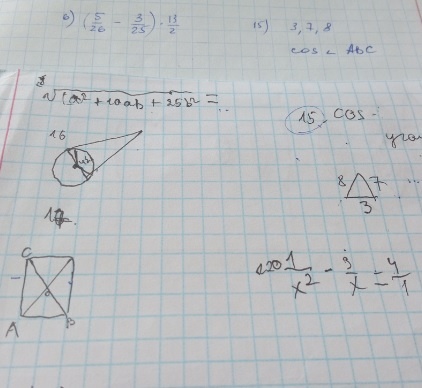 б) (5/26 - 3/25) · 13/2
15) 3, 7, 8
cos < ABC
√(a² + 10ab + 25b² = ..
15. cos -
16
8 7 ...
3
C
A B
1/x² - 3/x = 4/1